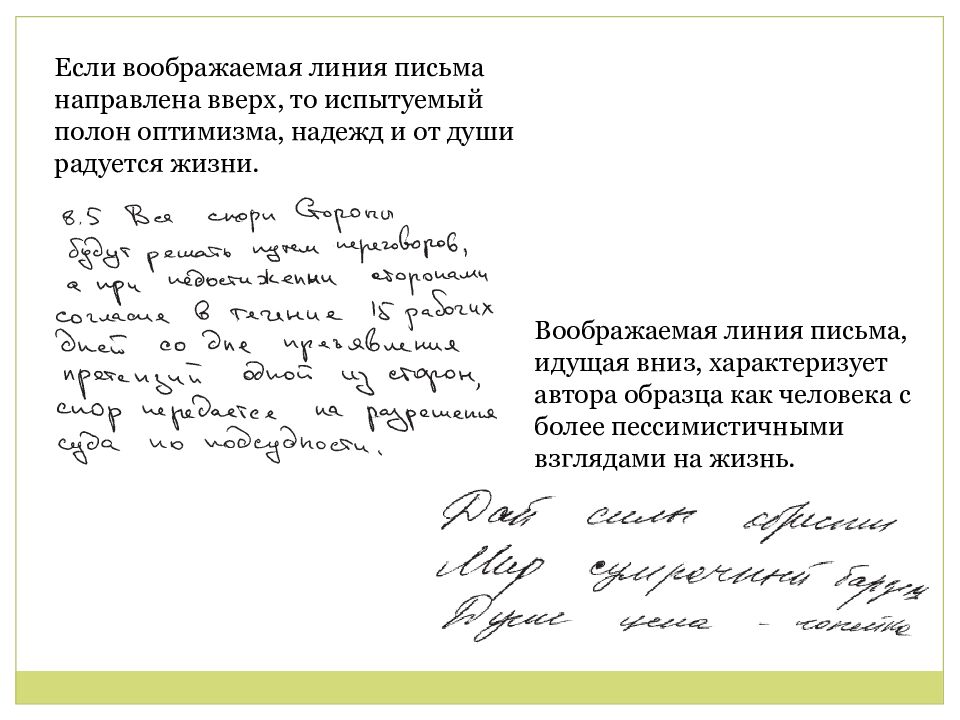 Если воображаемая линия письма
направлена вверх, то испытуемый
полон оптимизма, надежд и от души
радуется жизни.
8.5 Все споры Стороны
будут решать путем переговоров,
а при недостижении сторонами
согласие в течение 15 рабочих
дней со дне предъявления
претензий одной из сторон,
спор передается на разрешение
суда по подсудности.
Воображаемая линия письма,
идущая вниз, характеризует
автора образца как человека с
более пессимистичными
взглядами на жизнь.
Дай силы
Мир сумрачный
Душе цена - копейка